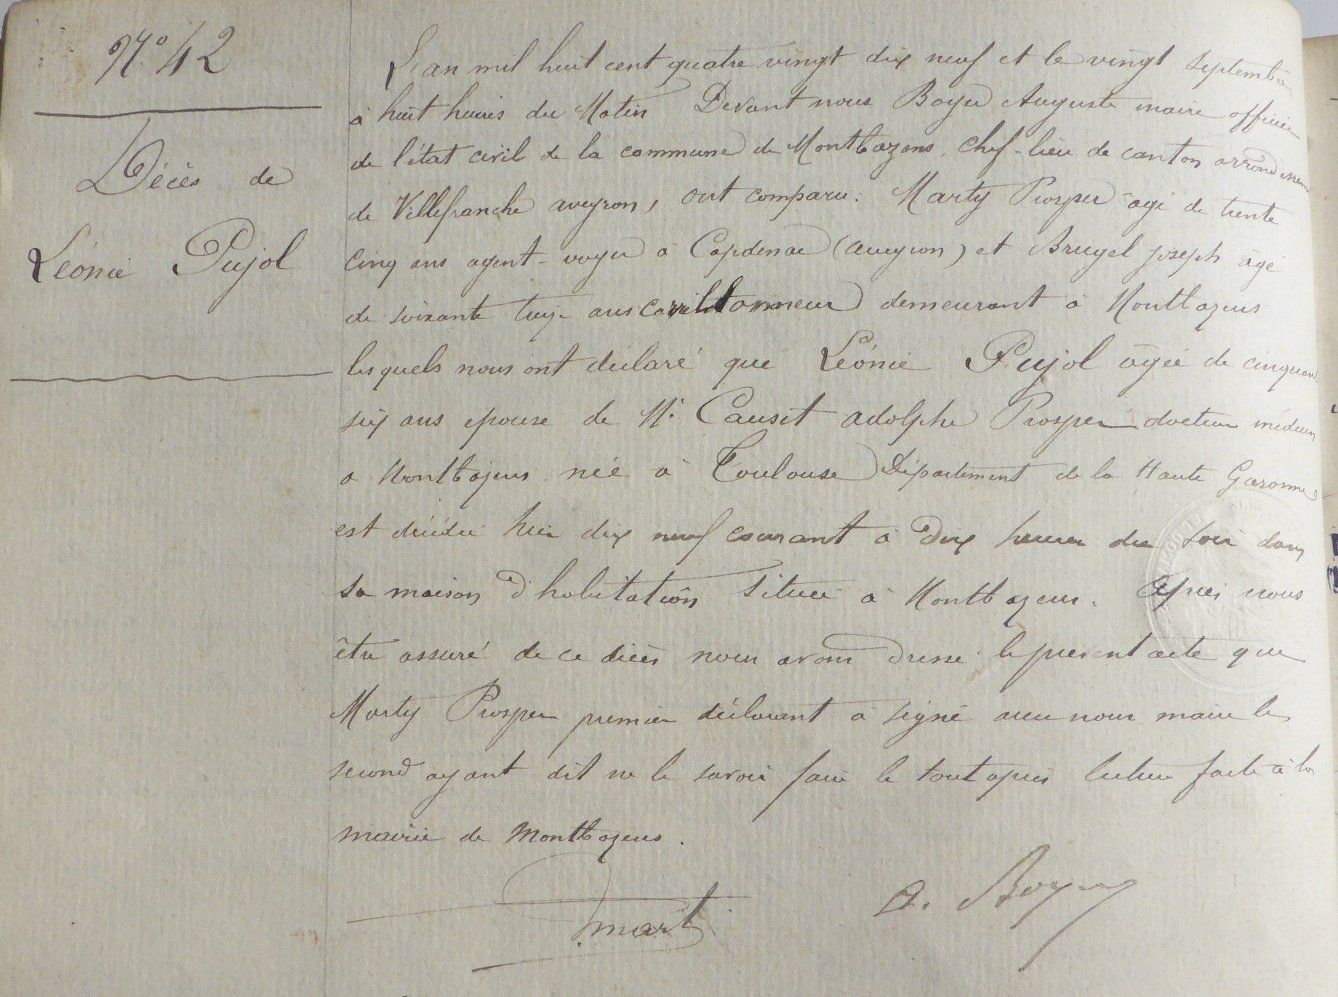 N° 42
Décès de
Léonie Pujol
L'an mil huit cent quatre vingt dix neuf et le vingt septembre
à huit heures du Matin Devant nous Boyer Auguste maire officier
de l'état civil de la commune de Montbazens, chef-lieu de canton arrondissement
de Villefranche aveyron, ont comparu: Marty Prosper âgé de trente
cinq ans agent-voyer à Capdenac (aveyron) et Brugel Joseph âgé
de soixante treize ans carillonneur demeurant à Montbazens
lesquels nous ont déclaré que Léonie Pujol âgée de cinquante
six ans epouse de Mr Causit adolphe Prosper docteur médecin
a Montbazens née à Toulouse Département de la Haute Garonne
est décédée hier dix neuf courant à dix heures du soir dans
sa maison d'habitation située à Montbazens. Après nous
être assuré de ce décès nous avons dressé le présent acte que
Marty Prosper premier déclarant a signé avec nous maire le
second ayant dit ne le savoir faire le tout après lecture faite à la
mairie de Montbazens.
Marty
A. Boyer